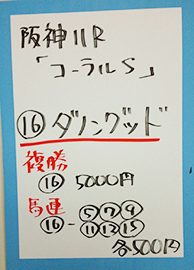 阪神11R
「コーラルS」
⑯ダノングッド
複勝
⑯ 5000円
馬連 ⑤⑦⑨
⑯-⑪⑬⑮
各500円